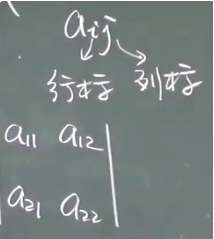 aij
行标 列标
a11 a12
a21 a22